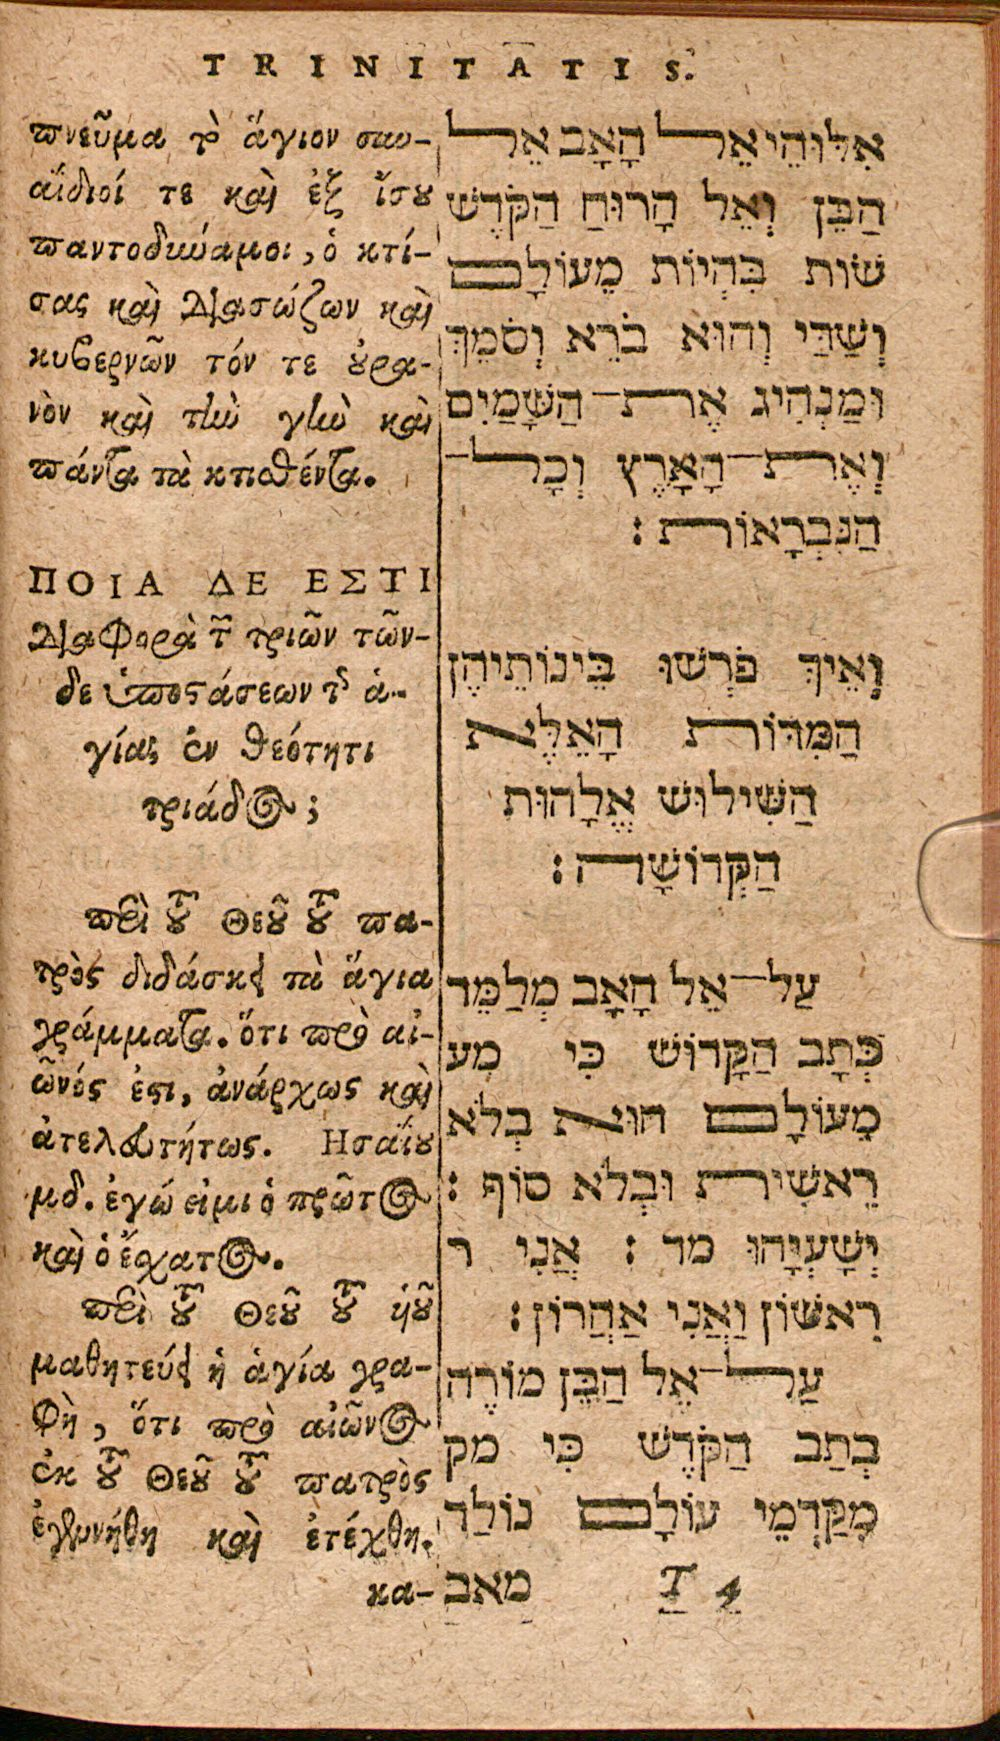 TRINITATIS.
πνεῦμα τὸ ἅγιον συν-
αΐδιοί τε καὶ ἐξ ἴσου
παντοδυνάμοι, ὁ κτί-
σας καὶ διασώζων καὶ
κυβερνῶν τόν τε οὐρα-
νὸν καὶ τὴν γῆν καὶ
πάντα τὰ κτισθέντα.
ΠΟΙΑ ΔΕ ΕΣΤΙ
διαφορὰ τῶν τριῶν τῶν-
δε ὑποστάσεων τῆς ἁ-
γίας ἐν θεότητι
τριάδος;
περὶ τοῦ Θεοῦ τοῦ πα-
τρὸς διδάσκει τὰ ἅγια
γράμματα. ὅτι πρὸ αἰ-
ῶνός ἐστι, ἀνάρχως καὶ
ἀτελευτήτως. Ησαΐου
μδ. ἐγώ εἰμι ὁ πρῶτος
καὶ ὁ ἔσχατος.
περὶ τοῦ Θεοῦ τοῦ ὑοῦ
μαθητεύει ἡ ἁγία γρα-
φὴ, ὅτι πρὸ αἰῶνος
ἐκ τοῦ Θεοῦ τοῦ πατρὸς
ἐγεννήθη καὶ ἐτέχθη.
κα-
אִלּוּהֵי אֵל הָאָב אֵל
הַבֵּן וְאֵל הָרוּחַ הַקֹּדֶשׁ
שׁוֹת בִּהְיוֹת מֵעוֹלָם
וְשַׁדַּי וְהוּא בֹּרֵא וְסֹמֵךְ
וּמַנְהִיג אֶת־הַשָּׁמַיִם
וְאֶת־הָאָרֶץ וְכָל־
הַנִּבְרָאוֹת׃
וְאֵיךְ פֹּרְשׁוּ בֵּינוֹתֵיהֶן
הַמִּדּוֹת הָאֵלֶּא
הַשִּׁילוּשׁ אֱלָהוּת
הַקְּדוֹשָׁה׃
עַל־אֵל הָאָב מְלַמֵּד
כְּתָב הַקָּדוֹשׁ כִּי מע
מֵעוֹלָם הוּא בְלֹא
רֵאשִׁית וּבְלֹא סוֹף׃
יְשַׁעְיָהוּ מד׃ אֲנִי ר
רִאשׁוֹן וַאֲנִי אַהֲרוֹן׃
עַל־אֵל הַבֵּן מוֹרֶה
כְּתַב הַקֹּדֶשׁ כִּי מק
מִקַּדְמֵי עוֹלָם נוֹלַד
T 4
מאב